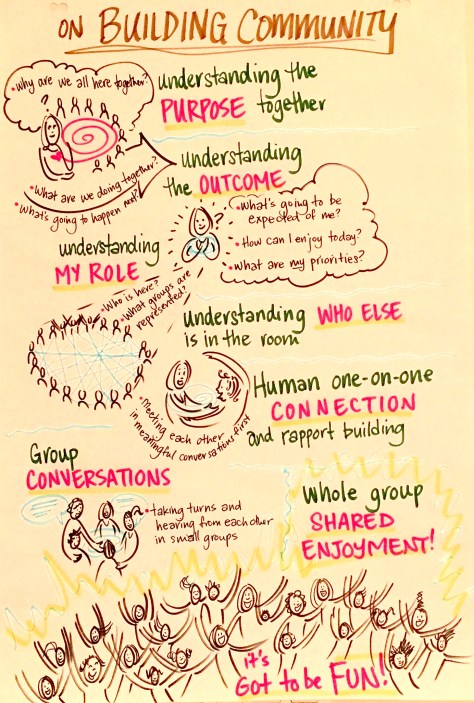 ON BUILDING COMMUNITY
• Why are we all here together?
?
understanding the
PURPOSE together
understanding
the OUTCOME
• What are we doing together?
• What's going to happen next?
understanding
MY ROLE
?
• What's going to be
expected of me?
• How can I enjoy today?
• What are my priorities?
• Who is here?
• What groups are
represented?
understanding WHO ELSE
is in the room
Human one-on-one
CONNECTION
and rapport building
• Meeting each other
in meaningful conversations first
Group
CONVERSATIONS
• taking turns and
hearing from each other
in small groups
Whole group
SHARED
ENJOYMENT!
it's
Got to be FUN!